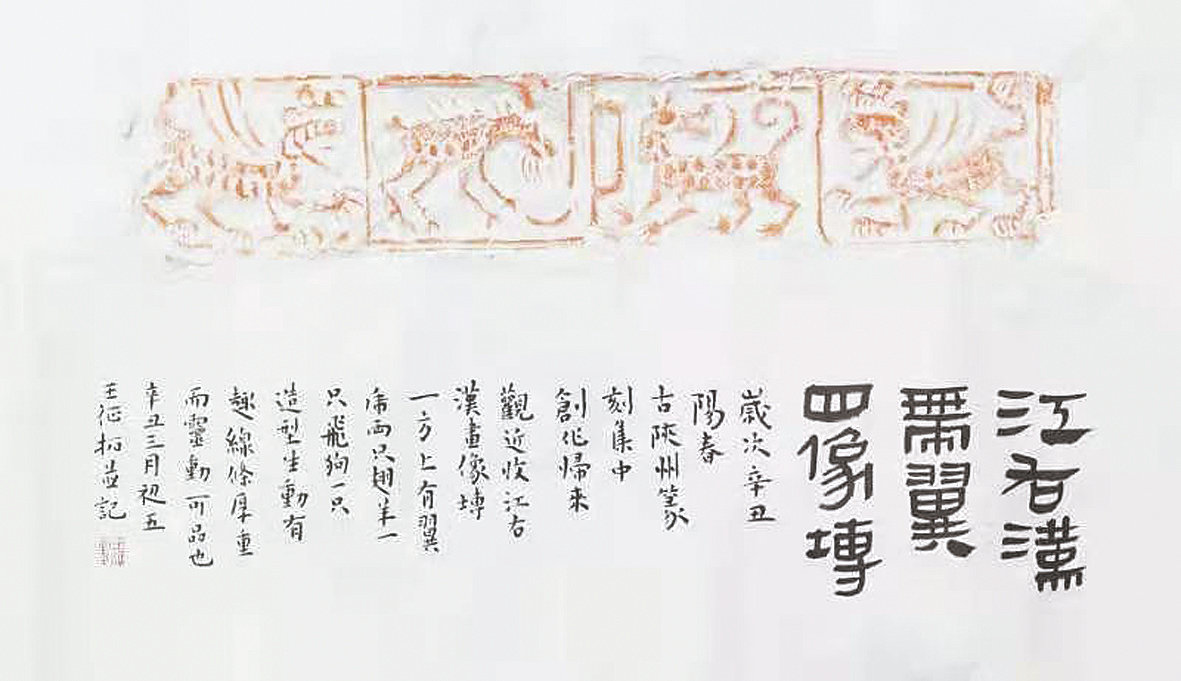 江右漢
帶翼
四像塼
歲次辛丑
陽春
古陝州篆
刻集中
創作歸來
觀近收江右
漢畫像塼
一方上有翼
虎两只翅羊一
只飛狗一只
造型生動有
趣線條厚重
而靈動可品也
辛丑三月初五
王征拓並記